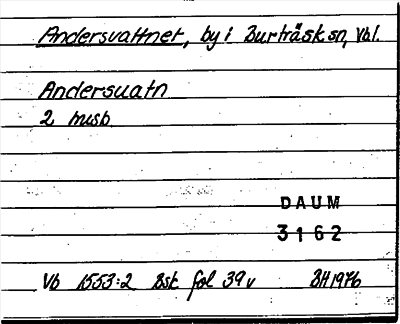 Andersvattnet, by i Burträsk sn, Vbl.
Andersuatn
2 husb
DAUM
3162
Vb 1553:2 Bsk fol 39v BH 1976